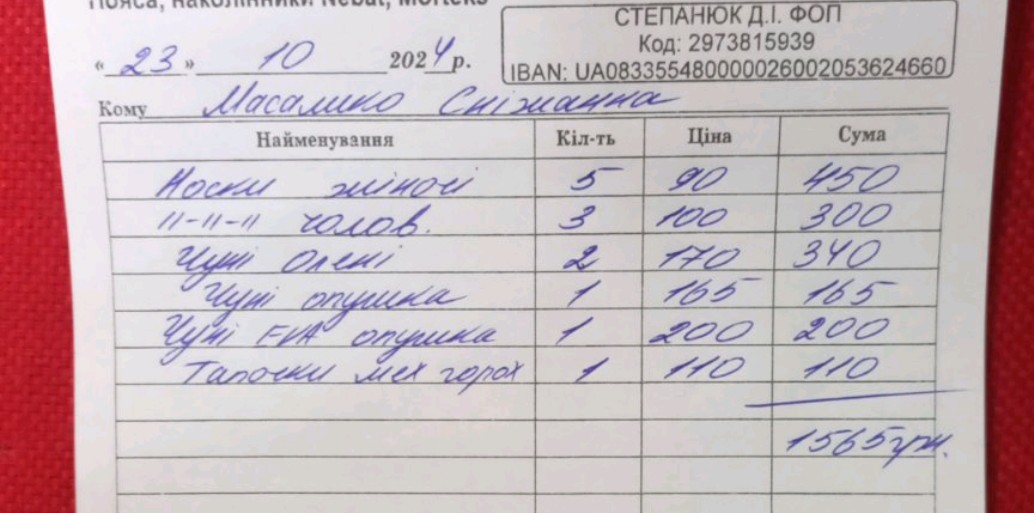 Пояса, наколінники Nebat, Morteks
СТЕПАНЮК Д.І. ФОП
Код: 2973815939
IBAN: UA083355480000026002053624660
« 23 » 10 2024 р.
Кому Масалико Сніжанна
Найменування Кіл-ть Ціна Сума
Носки жіночі 5 90 450
11-11-11 чолов. 3 100 300
Чуні Олені 2 170 340
Чуні опушка 1 165 165
Чуні EVA опушка 1 200 200
Тапочки мех горох 1 110 110
1565 грн.